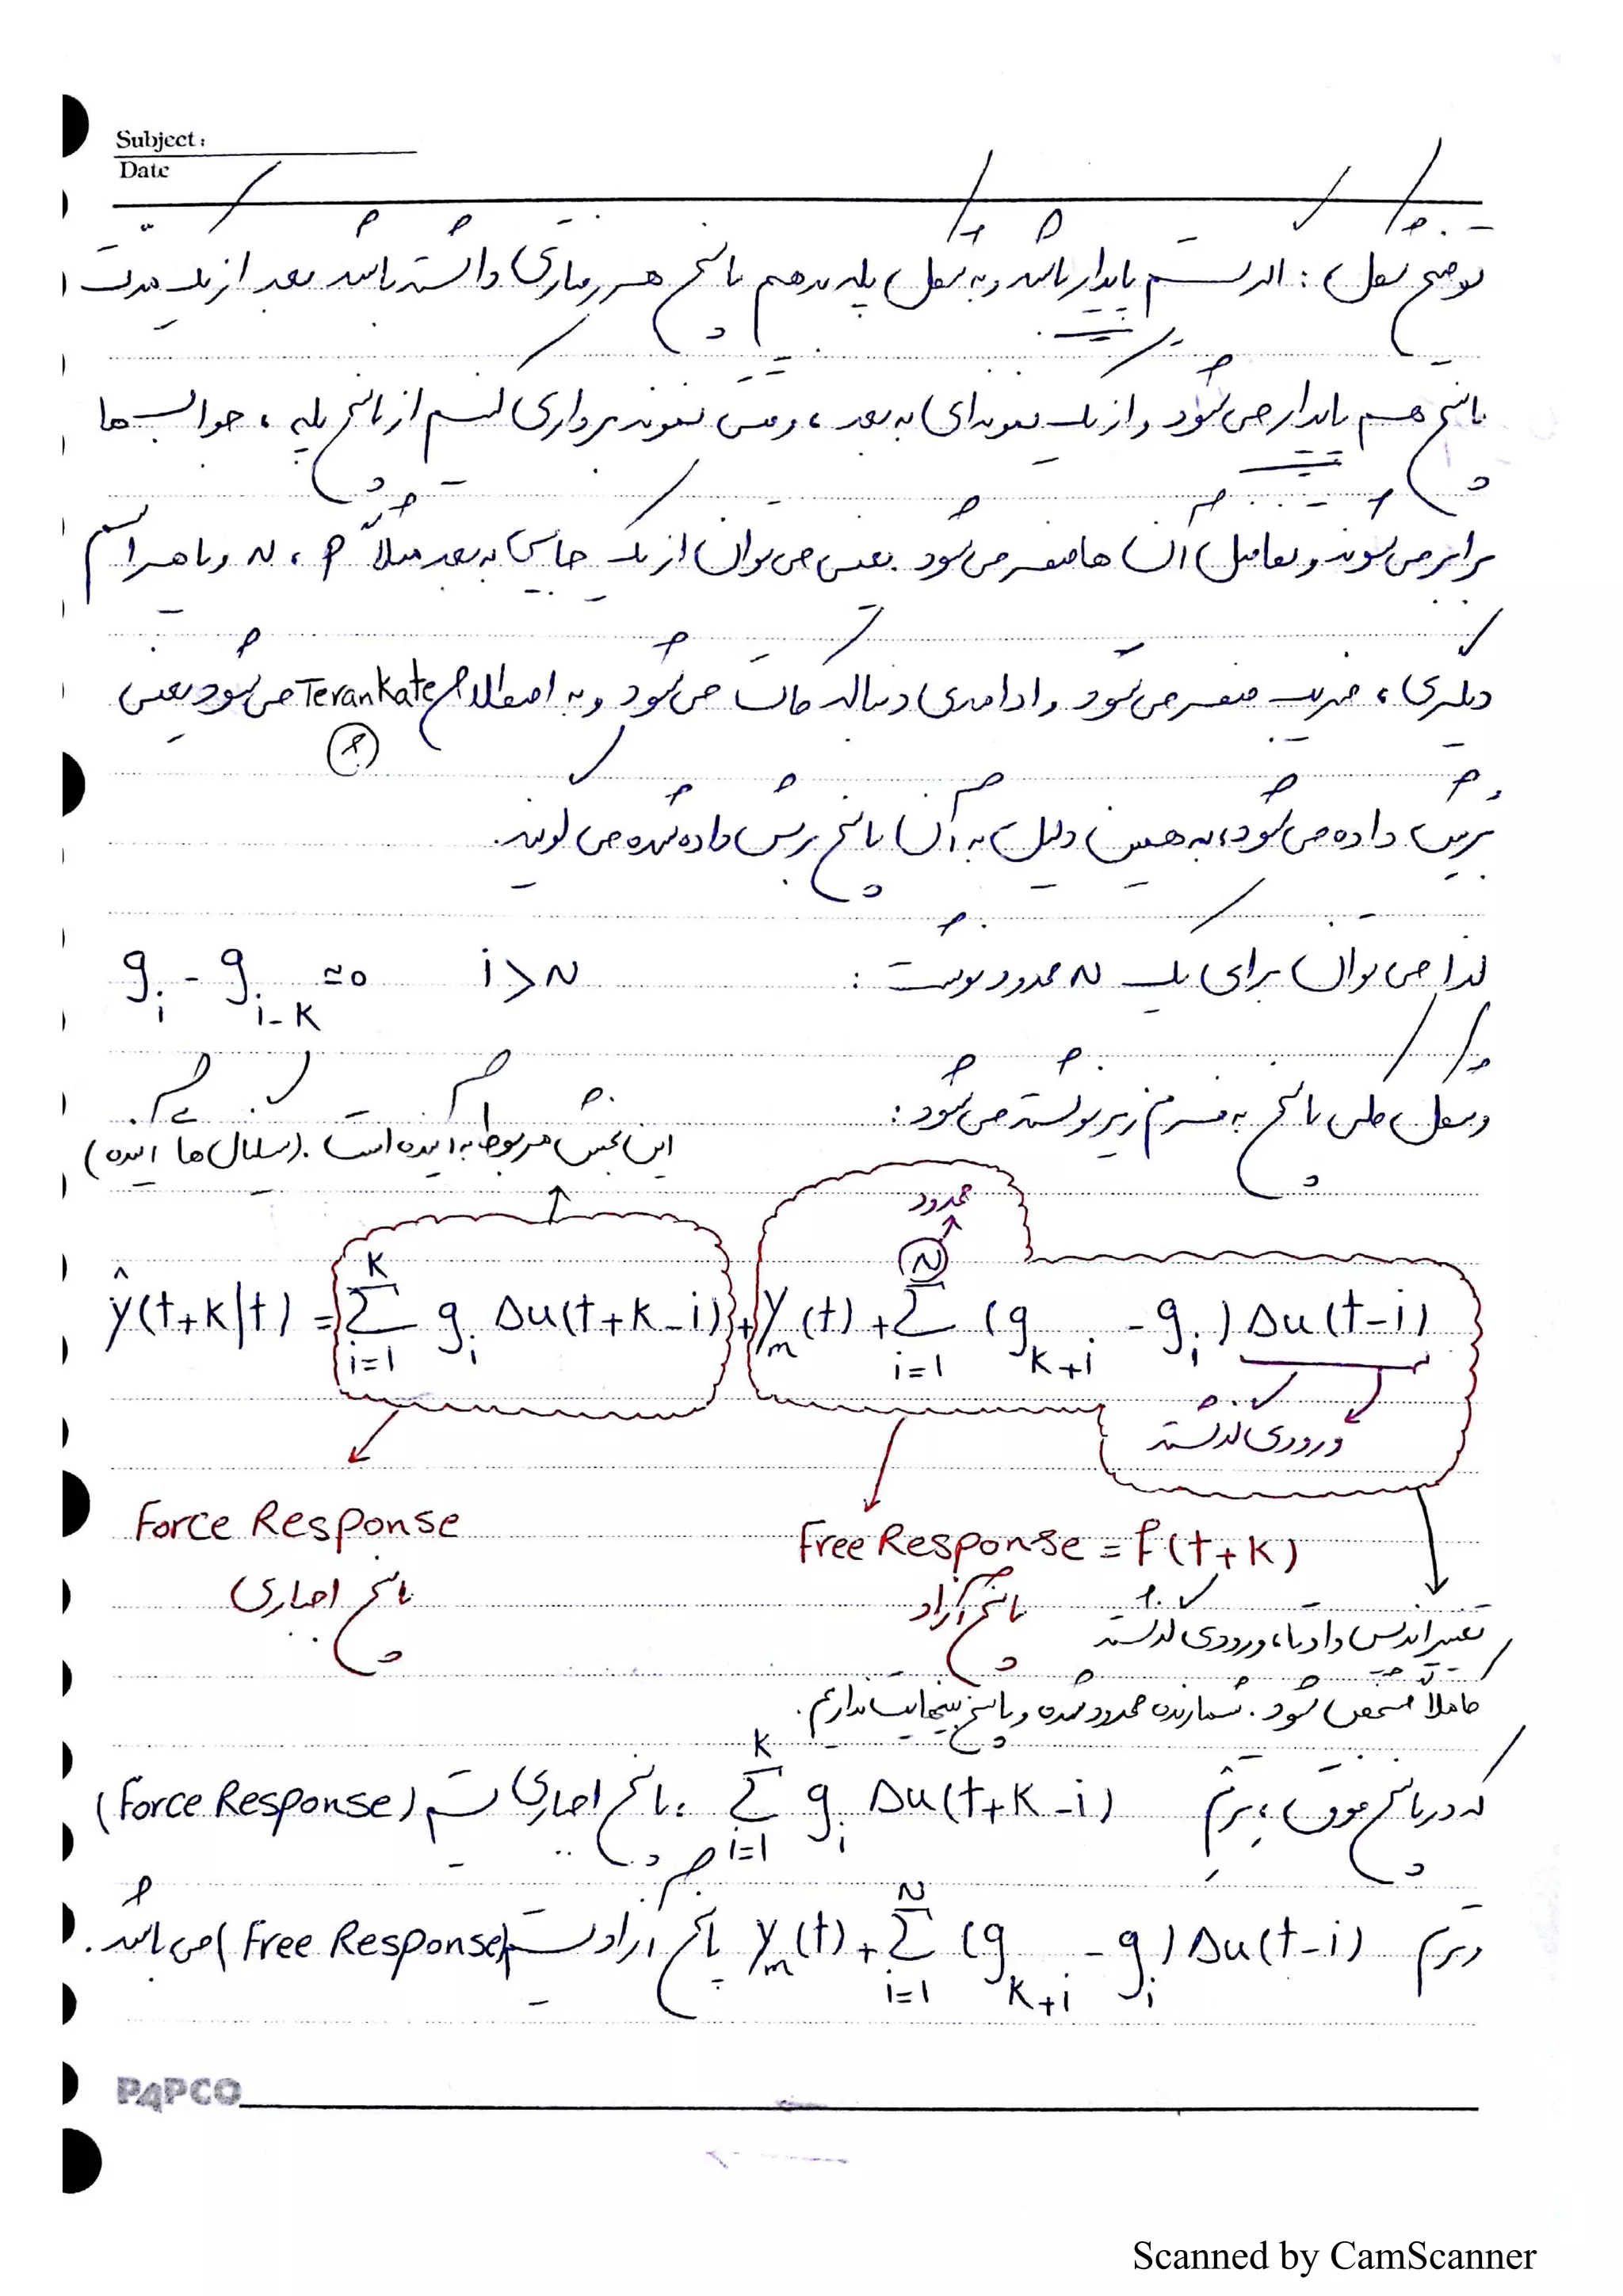 Subject:
Date
توضیح شکل: اگر سیستم پایدار باشد و به شکل پله بدهم پاسخ هر رفتاری داشته باشد بعد از یک مدت
پاسخ هم پایدار می‌شود و از یک نمونه‌ای به بعد، وقتی نمونه‌برداری کنیم از پاسخ پله، جواب‌ها
برابر می‌شوند و تفاضل آن‌ها صفر می‌شود. یعنی می‌توان از یک جایی به بعد مثلاً P، N و یا هر اسم
دیگری، ضریب صفر می‌شود و ادامه‌ی دنباله کات می‌شود و به اصطلاح Terankate می‌شود یعنی
(؟)
بُرش داده می‌شود، به همین دلیل به آن پاسخ برش داده شده می‌گویند.
لذا می‌توان برای یک N محدود نوشت: g_i - g_{i-K} ≈ 0 i > N
و شکل کلی پاسخ به فرم زیر نوشته می‌شود:
این بخش مربوط به آینده است. (سیگنال‌ها آینده)
محدود
ŷ(t+k|t) = Σ_{i=1}^{K} g_i Δu(t+k-i) + y_m(t) + Σ_{i=1}^{N} (g_{K+i} - g_i) Δu(t-i)
ورودی گذشته
Force Response
Free Response = f(t+k)
پاسخ اجباری
پاسخ آزاد
تغییر اندیس داد تا، ورودی گذشته
کاملاً مشخص شود. شمارنده محدود شده و پاسخ بینهایت نداریم.
که در پاسخ فوق، ترم Σ_{i=1}^{K} g_i Δu(t+k-i)، پاسخ اجباری سیستم (Force Response)
و ترم y_m(t) + Σ_{i=1}^{N} (g_{K+i} - g_i) Δu(t-i) پاسخ آزاد سیستم (Free Response) می‌باشد.
PAPCO
Scanned by CamScanner